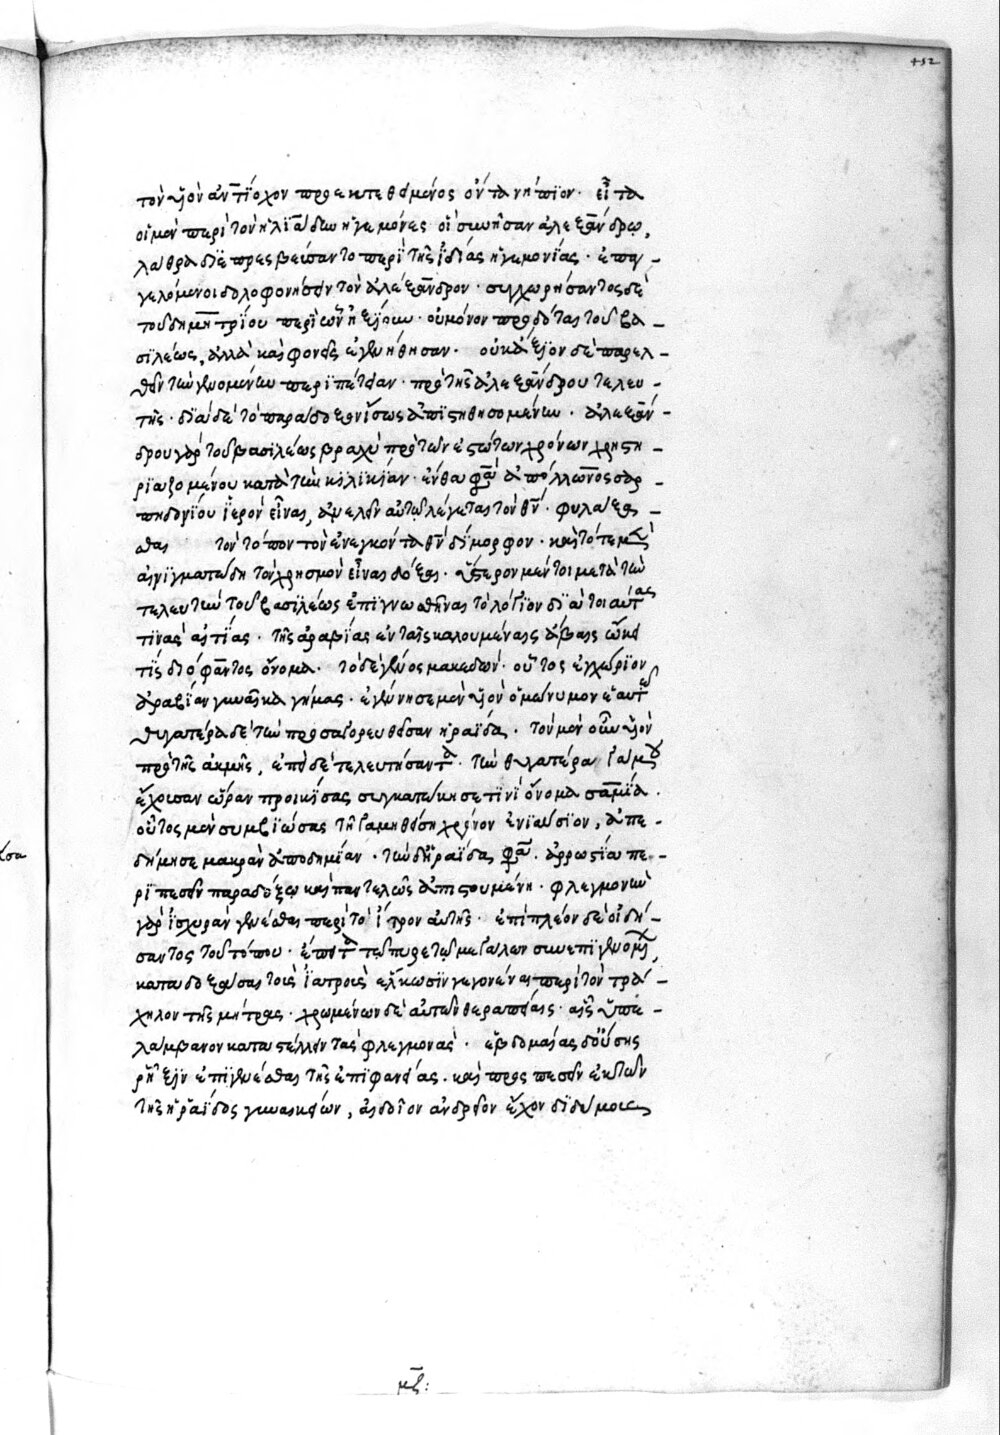 452
τὸν υἱὸν ἀντίοχον προεκτεθειμένος ὄντα νήπιον · εἶτα
οἱ μὲν περὶ τὸν ἡλιάδην ἡγεμόνες οἱ συνῆσαν ἀλεξάνδρῳ,
λαθρα διεπρεσβεύσαντο περὶ τῆς ἰδίας ἡγεμονίας · ἐπαγ-
γελόμενοι δολοφονήσειν τὸν ἀλέξανδρον · συγχωρήσαντος δὲ
τοῦ δημητρίου περὶ ὧν ἠξίουν · οὐ μόνον προδόται τοῦ βα-
σιλέως, ἀλλὰ καὶ φονεῖς ἐγενήθησαν · οὐκ ἄξιον δὲ παρελ-
θεῖν τὴν γενομένην περιπέτειαν · πρὸ τῆς ἀλεξάνδρου τελευ-
τῆς · διὰ δὲ τὸ παράδοξον ἴσως ἀπιστηθησομένην · ἀλεξάν-
δρου γὰρ τοῦ βασιλέως βραχὺ πρὸ τῶν ἐστώτων χρόνων χρηστη-
ριαζομένου κατὰ τὴν κιλικίαν · ἔνθα φασὶ ἀπόλλωνος σαρ-
πηδονίου ἱερὸν εἶναι, ἀνελεῖν αὐτῷ λέγεται τὸν θν · φυλάξασ-
θαι τὸν τόπον τὸν ἐνεγκόντα θν δίμορφον · καὶ τότε μὲν
αἰνιγματώδη τὸν χρησμὸν εἶναι δόξαι · ὕστερον μέντοι μετὰ τὴν
τελευτὴν τοῦ βασιλέως ἐπιγνωσθῆναι τὸ λόγιον διὰ τοιαύτας
τινὰς αἰτίας · τῆς ἀραβίας ἐν ταῖς καλουμέναις ἄβαις ᾤκει
τὶς διόφαντος ὄνομα · τὸ δὲ γένος μακεδών · οὗτος ἐγχωρίον
ἀραβίαν γυναῖκα γήμας · ἐγέννησε μὲν υἱὸν ὁμώνυμον ἑαυτῷ
θυγατέρα δὲ τὴν προσαγορευθεῖσαν ἡραΐδα · τὸν μὲν οὖν υἱὸν
πρὸ τῆς ἀκμῆς, ἐπεῖδε τελευτήσαντα · τὴν θυγατέρα γάμου
ἔχουσαν ὥραν προικίσας συγκατῴκησε τινὶ ὄνομα σαμιά ·
οὗτος μὲν συμβιώσας τῇ γαμηθείσῃ χρόνον ἐνιαύσιον, ἀπε-
δήμησε μακρὰν ἀποδημίαν · τὴν δ' ἡραΐδα, φασὶ · ἀρρωστίᾳ πε-
ριπεσεῖν παραδόξῳ καὶ παντελῶς ἀπιστουμένῃ · φλεγμονὴν
γὰρ ἰσχυρὰν γενέσθαι περὶ τὸ ἦτρον αὐτῆς · ἐπὶ πλέον δὲ οἰδή-
σαντος τοῦ τόπου · ἔπειτα τῶν πυρετῶν μεγάλων συνεπιγενομένων,
καταδοξάσαι τοὺς ἰατροὺς ἕλκωσιν γεγονέναι περὶ τὸν τρά-
χηλον τῆς μήτρας · χρωμένων δὲ αὐτῶν θεραπείαις · αἷς ὑπε-
λάμβανον καταστέλλειν τὰς φλεγμονάς · ἑβδομαίας δ' οὔσης
ῥῆξιν ἐπιγενέσθαι τῆς ἐπιφανείας · καὶ προσπεσεῖν ἐκ τῶν
τῆς ἡραΐδος γυναικείων, αἰδοῖον ἀνδρεῖον ἔχον διδύμους